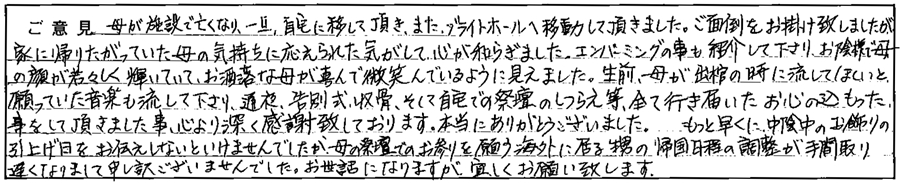 ご意見 母が施設で亡くなり、一旦、自宅に移して頂き、また、ブライトホールへ移動して頂きました。ご面倒をお掛け致しましたが
家に帰りたがっていた母の気持ちに応えられた気がして、心が和らぎました。エンバーミングの事も紹介して下さり、お陰様で母
の顔が若々しく輝いていて、お洒落な母が喜んで微笑んでいるように見えました。生前、母が出棺の時に流してほしいと
願っていた音楽も流して下さり、通夜、告別式、収骨、そして自宅での祭壇のしつらえ等、全て行き届いたお心の込もった
事をして頂きました事、心より深く感謝致しております。本当にありがとうございました。 もっと早くに、中陰中のお飾りの
引上げ日をお伝えしないといけませんでしたが母の祭壇でのお参りを願う海外に居る甥の帰国日程の調整が手間取り
遅くなりまして申し訳ございませんでした。お世話になりますが、宜しくお願い致します。